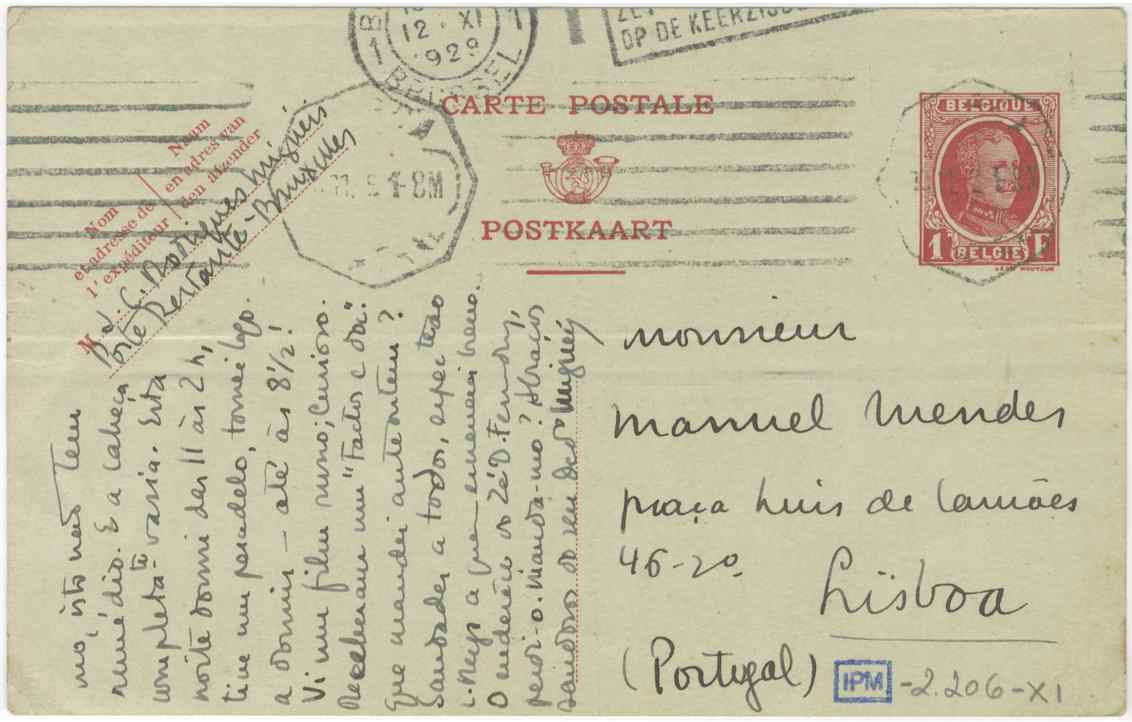 12 . XI
1929
BRUSSEL
1
1
OP DE KEERZIJDE
CARTE POSTALE
POSTKAART
BELGIQUE
1 F
BELGIE
Nom
et adresse de
l'expéditeur
Naam
en adres van
den afzender
Rodrigues Miguéis
Poste Restante - Bruxelles
1-8M
mo, isto não tem
remédio. E a cabeça
completa-te vasia. Esta
noite dormi das 11 às 2 h,
tive um pesadelo, tornei logo
a dormir - até às 8 1/2!
Vi um film russo; curioso.
Receberam um "Factos e do"
que mandei anteontem?
Saudades a todos, excepto
O endereço do Zé D. Fernandes,
perdi-o. Manda-mo? Abraços
saudosos do seu ded.º Miguéis
Monsieur
Manuel Mendes
Praça Luis de Camões
46-2º
Lisboa
(Portugal)
IPM
-2.206-XI